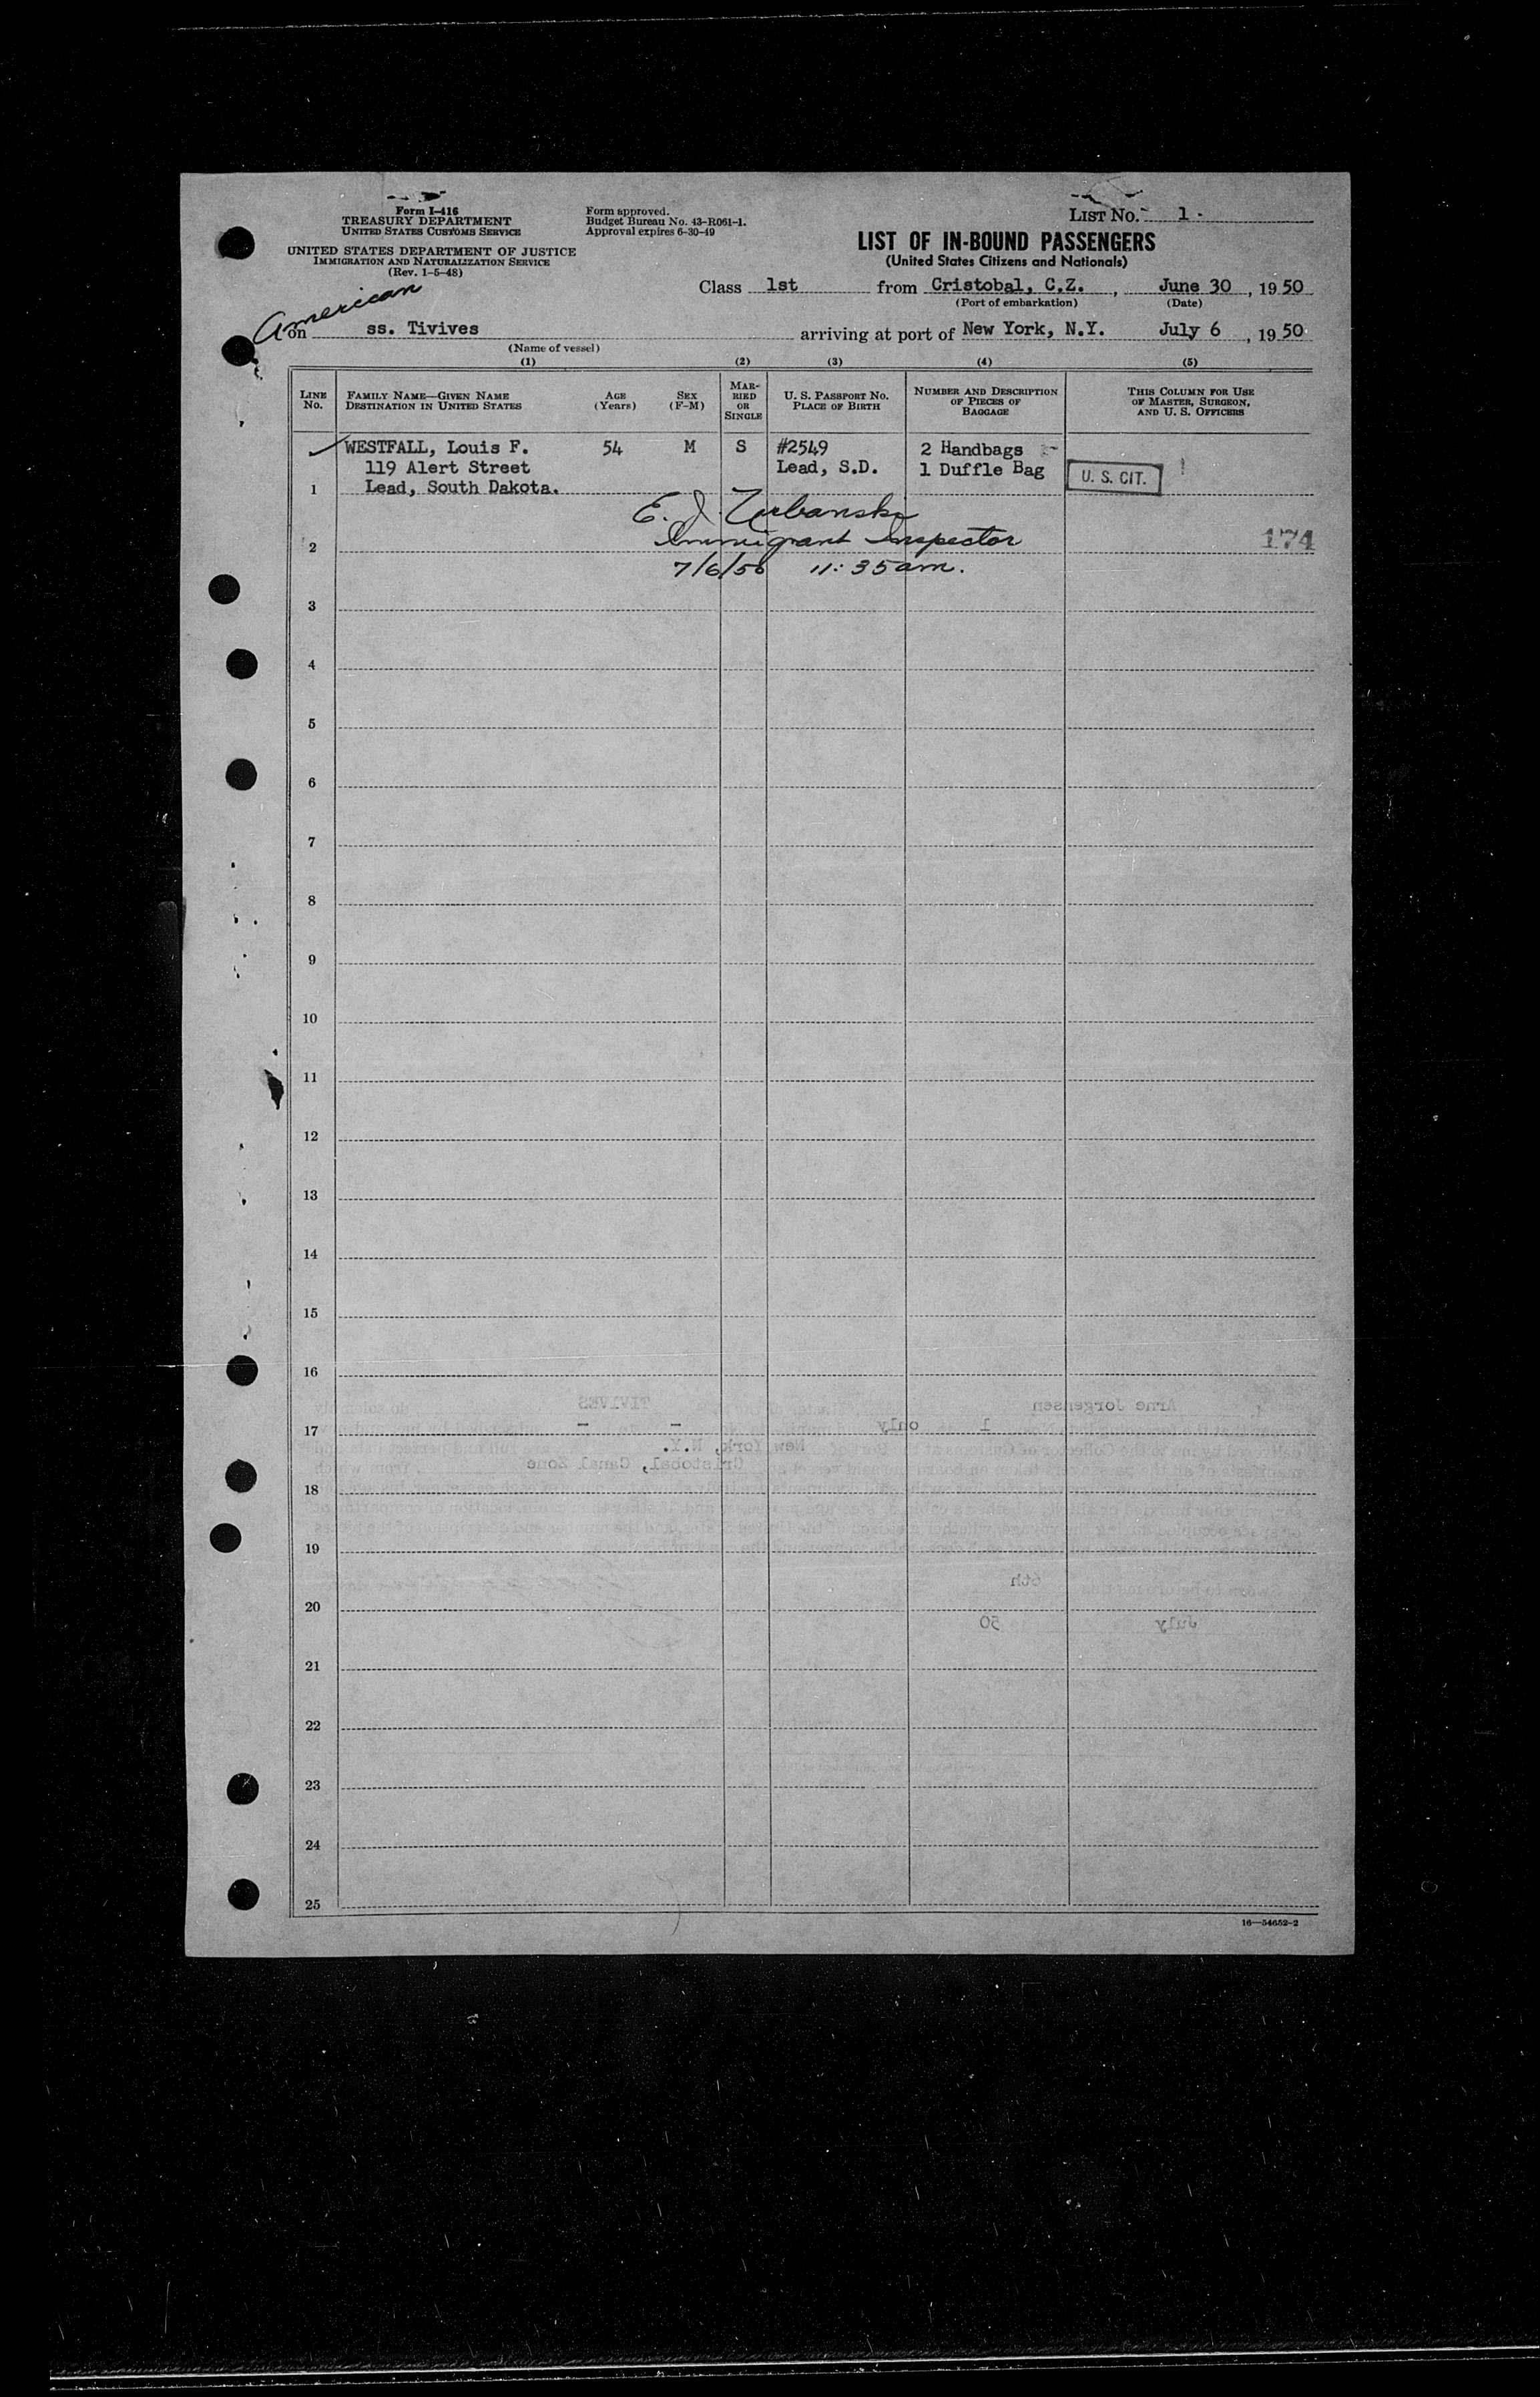 Form I-416
TREASURY DEPARTMENT
UNITED STATES CUSTOMS SERVICE
UNITED STATES DEPARTMENT OF JUSTICE
IMMIGRATION AND NATURALIZATION SERVICE
(Rev. 1-5-48)
Form approved.
Budget Bureau No. 43-R061-1.
Approval expires 6-30-49
LIST No. 1.
LIST OF IN-BOUND PASSENGERS
(United States Citizens and Nationals)
Class 1st from Cristobal, C.Z., June 30, 1950
(Port of embarkation) (Date)
American
on ss. Tivives arriving at port of New York, N.Y. July 6, 1950
(Name of vessel)
(1) (2) (3) (4) (5)
LINE No. FAMILY NAME—GIVEN NAME DESTINATION IN UNITED STATES AGE (Years) SEX (F-M) MARRIED OR SINGLE U. S. PASSPORT No. PLACE OF BIRTH NUMBER AND DESCRIPTION OF PIECES OF BAGGAGE THIS COLUMN FOR USE OF MASTER, SURGEON, AND U. S. OFFICERS
WESTFALL, Louis F. 54 M S #2549 2 Handbags
119 Alert Street Lead, S.D. 1 Duffle Bag U. S. CIT.
1 Lead, South Dakota.
E. J. Urbanski
2 Immigrant Inspector 174
7/6/50 11:35am.
3
4
5
6
7
8
9
10
11
12
13
14
15
16
Arne Jorgensen TIVIVES
17 1 only - -
New York, N.Y.
Cristobal, Canal Zone
18
19
6th
20
July 50
21
22
23
24
25
16—54652-2